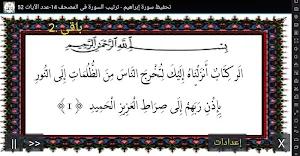 تحفيظ سورة إبراهيم - ترتيب السورة في المصحف 14-عدد الآيات 52
باقي: 2
بِسْمِ اللَّهِ الرَّحْمَٰنِ الرَّحِيمِ
الر كِتَابٌ أَنزَلْنَاهُ إِلَيْكَ لِتُخْرِجَ النَّاسَ مِنَ الظُّلُمَاتِ إِلَى النُّورِ
بِإِذْنِ رَبِّهِمْ إِلَى صِرَاطِ الْعَزِيزِ الْحَمِيدِ ﴿ ١ ﴾
|| >> إعدادات X